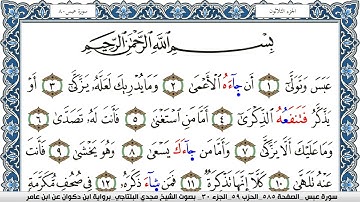 الجزء الثلاثون
سورة عبس ٨٠
بِسْمِ اللَّهِ الرَّحْمَٰنِ الرَّحِيمِ
عَبَسَ وَتَوَلَّىٰٓ ١ أَن جَآءَهُ ٱلْأَعْمَىٰ ٢ وَمَا يُدْرِيكَ لَعَلَّهُۥ يَزَّكَّىٰٓ ٣ أَوْ
يَذَّكَّرُ فَتَنفَعُهُ ٱلذِّكْرَىٰٓ ٤ أَمَّا مَنِ ٱسْتَغْنَىٰ ٥ فَأَنتَ لَهُۥ تَصَدَّىٰ ٦
وَمَا عَلَيْكَ أَلَّا يَزَّكَّىٰ ٧ وَأَمَّا مَن جَآءَكَ يَسْعَىٰ ٨ وَهُوَ يَخْشَىٰ ٩ فَأَنتَ
عَنْهُ تَلَهَّىٰ ١٠ كَلَّآ إِنَّهَا تَذْكِرَةٌ ١١ فَمَن شَآءَ ذَكَرَهُۥ ١٢ فِى صُحُفٍ مُّكَرَّمَةٍ
سورة عبس . الصفحة ٥٨٥ . الحزب ٥٩ . الجزء ٣٠ . بصوت الشيخ مجدي البلتاجي . برواية ابن ذكوان عن ابن عامر